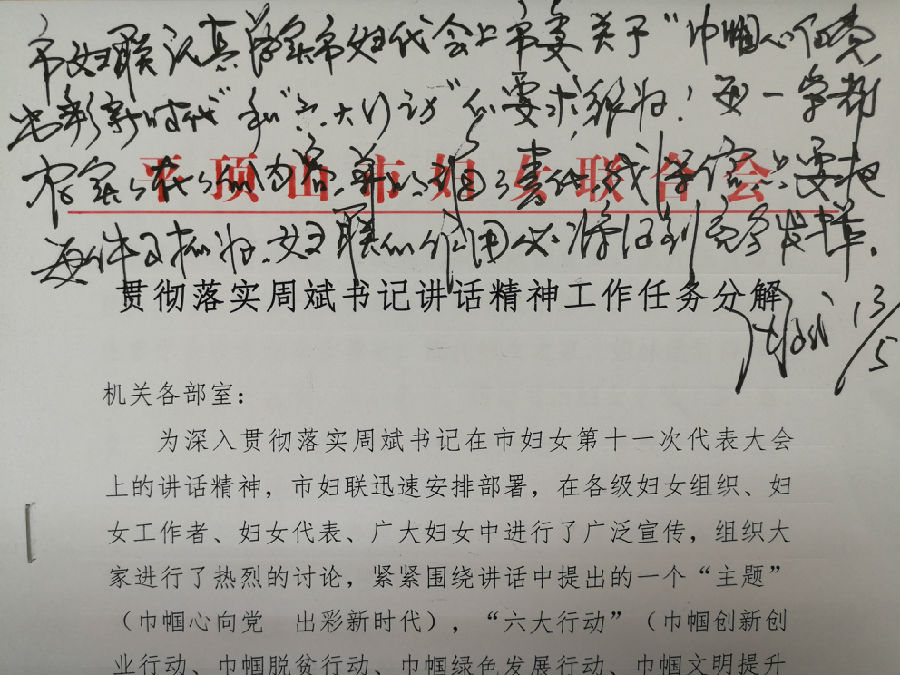 市妇联认真落实市妇代会上市委关于“巾帼心向党
出彩新时代”和“六大行动”的要求很好！
平顶山市妇女联合会
要把
每件事抓好，妇联的作用必将得到充分发挥。
贯彻落实周斌书记讲话精神工作任务分解
周斌 13/5
机关各部室：
为深入贯彻落实周斌书记在市妇女第十一次代表大会
上的讲话精神，市妇联迅速安排部署，在各级妇女组织、妇
女工作者、妇女代表、广大妇女中进行了广泛宣传，组织大
家进行了热烈的讨论，紧紧围绕讲话中提出的一个“主题”
（巾帼心向党　出彩新时代），“六大行动”（巾帼创新创
业行动、巾帼脱贫行动、巾帼绿色发展行动、巾帼文明提升